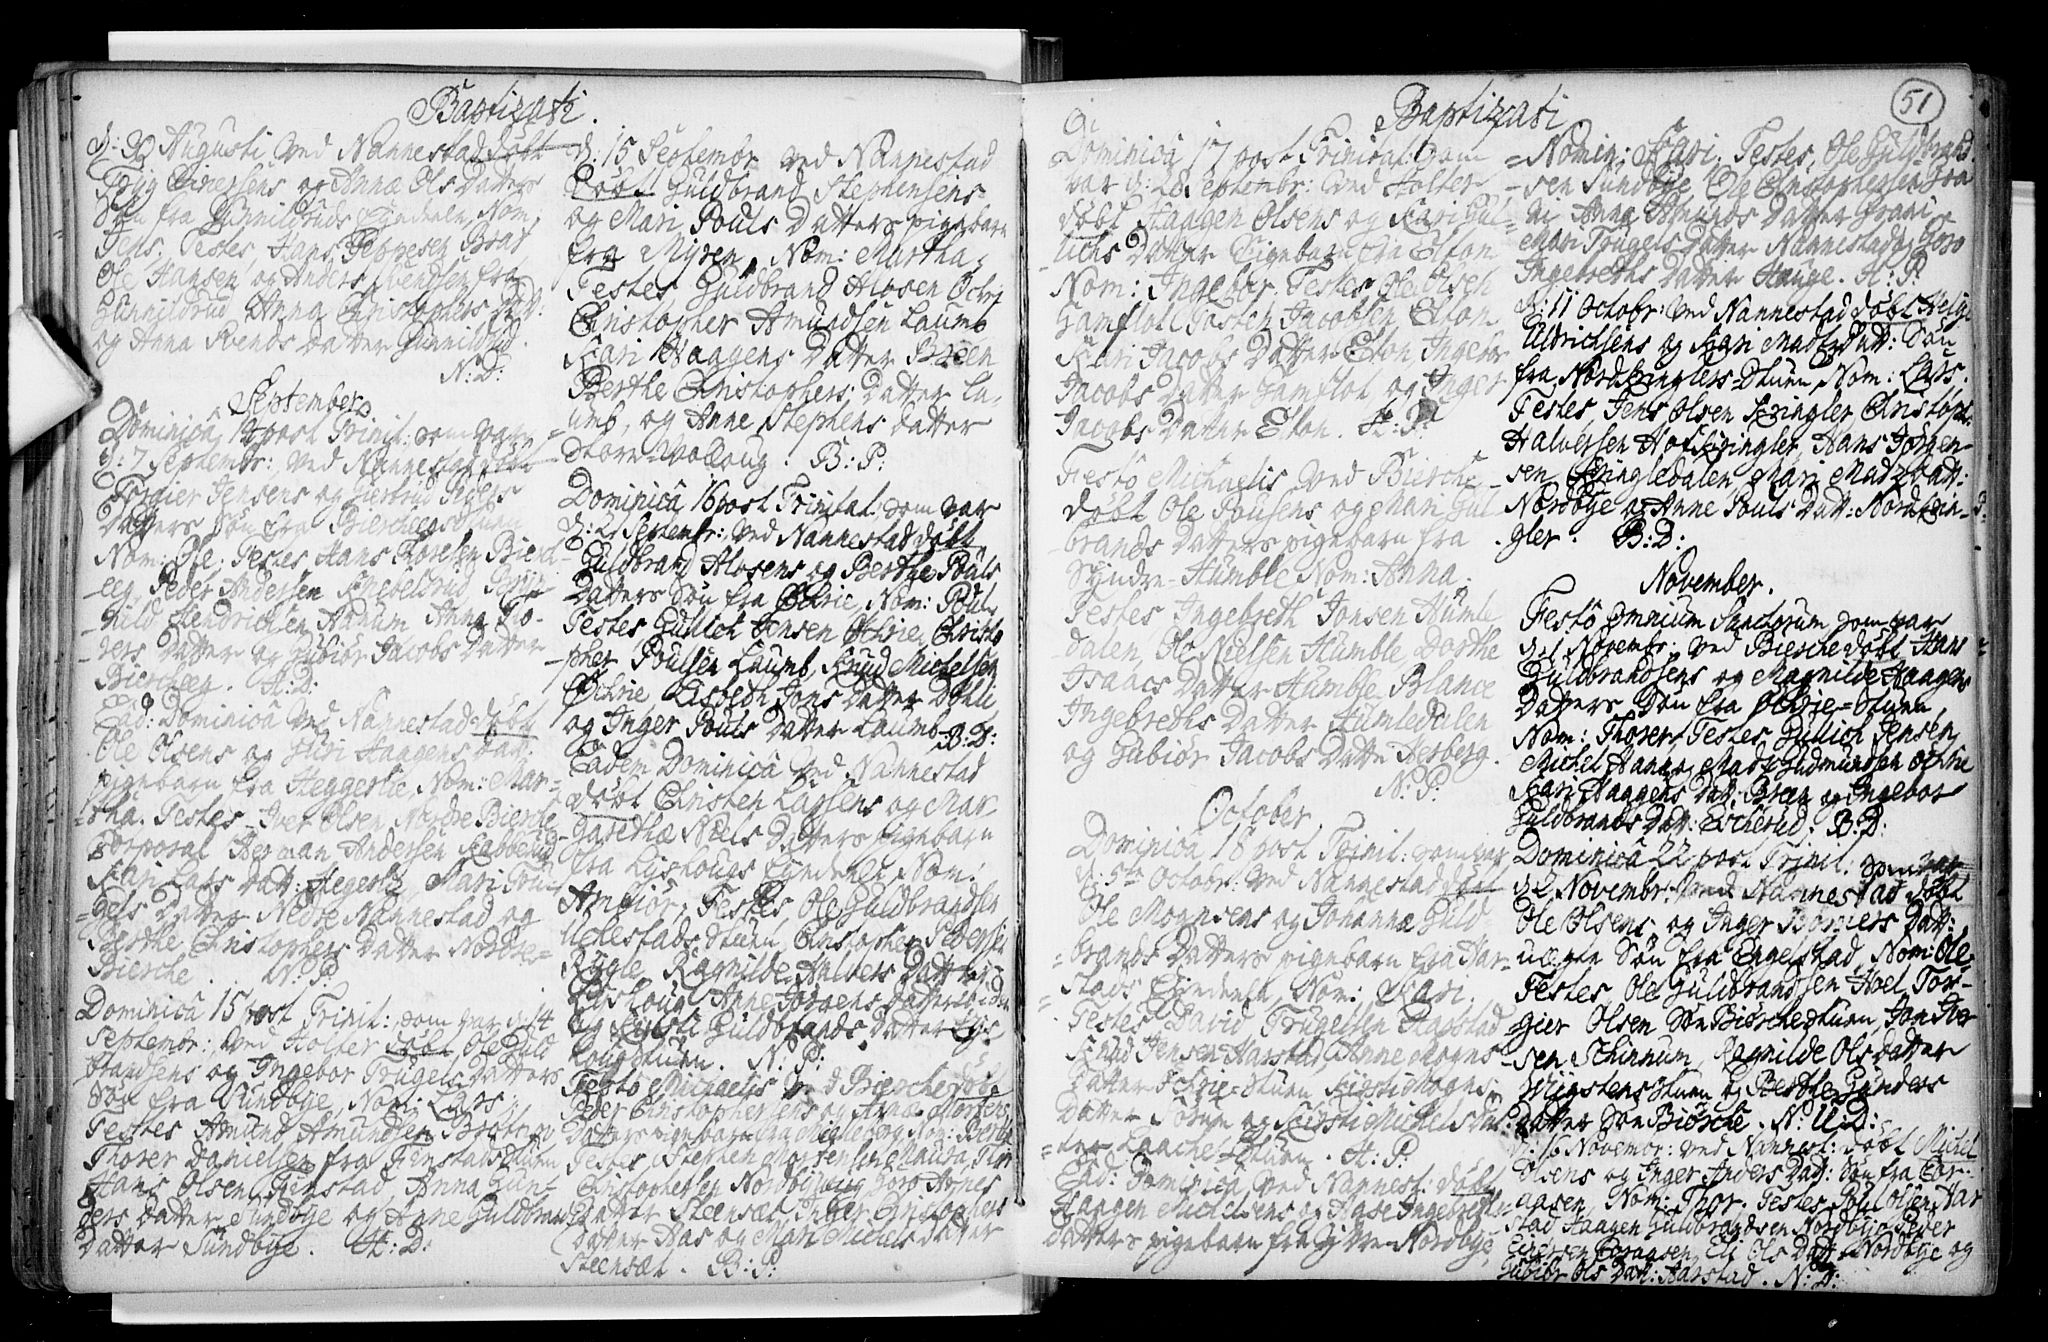 Baptizati.
d: 30 Augusti ved Nannestad döbt
Tryg Einersens og Annæ Ols Datters
Sön fra Gunnildruds Eyendeele, Nom:
Jens. Testes, Hans Jeppesen Braat
Ole Hansen og Anders Svendsen fra
Gunnildrud, Anna Christophers Dat:
og Anna Svends Datter Gunnildrud.
N: D:
September.
Dominicâ 14 post Trinit: som var
d: 7 Septembr: ved Nannestad döbt
Torgier Jensens og Giertrud Peders
Datters Sön fra Bierchegstuen
Nom: Ole; Testes, Hans Thoresen Bierch
eg, Peder Andersen Knebelsrud,
-hild Hendrichsen Hanum Anna To-
-ders Datter og Gubiör Jacobs Datter
Biercheeg. H: D:
Ead: Dominicâ ved Nannestad döbt
Ole Olsens og Guri Haagens Dat:
pigebarn fra Heggerlie, Nom: Mar-
-tha. Testes, Iver Olsen Nordre Bierche
Corporal Herman Andersen Labberud
Kari Lars Dat: Hegerlie, Mari Tru-
-gels Datter Nedre Nannestad og
Berthe Christophers Datter Nordre-
Bierche. N: P:
Dominicâ 15 post Trinit: som var d: 14
Septembr: ved Holter döbt Ole Guld
brandsens og Ingebor Trugels Datters
Sön fra Sundbye, Nom: Lars;
Testes Amund Amundsen Bråtene
Thorer Danielsen fra Jenstadstuen
Hans Olsen Genstad, Anna Gun-
ders Datter Sundbye og Anne Guldbrands
Datter Sundbye. H: D:
d: 15 Septembr ved Nannestad
döbt Guldbrand Stephensens
og Mari Pouls Datters pigebarn
fra Myren, Nom: Martha;
Testes Guldbrand Alosen Öchrie
Christopher Amundsen Laumb
Kari Haagens Datter Breen
Berthe Christophers Datter La-
umb, og Anne Stephens Datter
Store-Walloug. B: P:
Dominicâ 16 post Trinitat: som var
d: 21 Septembr: ved Nannestad döbt
Guldbrand Alosens og Berthe Pouls
Datters Sön fra Öchrie, Nom: Poul,
Testes Gulich Jensen Öchrie, Christo
-pher Poulsen Laumb, Knud Michelsen
Öchrie Lisbeth Jons Datter Dahli
og Inger Pouls Datter Laumb. B: D:
Eadem Dominicâ ved Nannestad
döbt Christen Larsens og Mar-
garethæ Niels Datters pigebarn
fra Lysougs Eyendeele, Nom:
Anbiör, Testes, Ole Guldbrandsen
Uchestadstuen Christopher Pedersen
Rögle Ragnilde Halvers Datter
Lysloug Anne Jörgens Datter
og Kiersti Guldbrands Datter Lys-
lougstuen. N: P:
Festo Michaelis ved Bierche döbt
Peder Christophersens og Anna Mortens
Datters pigebarn fra Mielleborg Nom: Berthe
Testes, Stephen Mortensen Maura, Thor
Christophersen Nordbye Goro Agnes
Datter Steensæt, Inger Christophers
Datter Aas og Mari Michels Datter
Steensæt. B: P:
Baptizati
51
Dominicâ 17 post Trinitat: som
var d: 28 Septembr: ved Holter
döbt Haagen Olsens og Kari Gul-
-lichs Datters Pigebarn fra Elton
Nom: Ingebor. Testes Ole Olsen
Gamflot Josten Jacobsen Elton
Kari Jacobs Datter Elton Ingebor
Jacobs Datter Gamflot og Inger
Jacobs Datter Elton. H: P:
Festo Michaelis ved Bierche
döbt Ole Poulsens og Mari Gul-
brands Datters pigebarn fra
Syndre-Humble Nom: Anna.
Testes Ingebreth Jonsen Humle
dalen, Ole Nielsen Humble Dorthe
Isaacs Datter Humble Blance
Ingebreths Datter Humledalen
og Gubiör Jacobs Datter Herberg.
N: P:
October.
Dominicâ 18 post Trinit: som var
d: 5te Octobr: ved Nannestad döbt
Ole Mogensens og Johannæ Guld
-brands Datters pigebarn fra Har-
-stads Eyendeele, Nom: Kari.
Testes David Trugelsen Harstad
Knud Jensen Harstad, Anne Mogns
Datter Öchrie-Stuen Kiersti Mogns
Datter Sörum og Kiersti Michels Dat-
-ter Laache-Stuen. H: P.
Ead: Dominicâ ved Nannest: döbt
Haagen Michelsens og Aase Ingebreths
Datters pigebarn fra Nordbye
-Nomin: Kari. Testes, Ole Guldbrand-
-sen Sundbye, Ole Christophersen Gra
ni Anna Amunds Datter Grani
Mari Trugels Datter Nannestad og Goro
Ingebreths Datter Hauge. H: P.
d: 11 Octobr: ved Nannestad döbt Helge
Uldrichsens og Kari Mads Dat: Sön
fra Nordkringlers-Stuen, Nom: Lars.
Testes Jens Olsen Kringler Christopher
Halversen Hofkringler, Hans Jörgen-
sen Kringledalen Mari Mads Dat:
Nordbye og Anne Pouls Dat: Nordkrin-
-gler. B: D:
November.
Festo omnium Sanctorum som var
d: 1 Novembr: ved Bierche döbt Hans
Guldbrandsens og Magnilde Haagens
Datters Sön fra Öchrie-Stuen
Nom: Thorer, Testes Gulich Jensen,
Michel Hanna Mats Gudmundsen Öchrie
Kari Haagens Dat: Breen og Ingebor
Guldbrands Dat: Escherud. B: D:
Dominicâ 22 post Trinit: som var
d: 2 Novembr: ved Nannestad döbt
Ole Olsens og Inger Börgers Dat:
uægte Sön fra Engelstad, Nom: Ole.
Testes, Ole Guldbrandsen Hoel, Tor-
gier Olsen Bierchestuen, Jon Iver
sen Schinnum, Ragnilde Ols Datter
Wigstenstuen og Berthe Gunders
Datter Bierche. N: U: D:
d: 16 Novembr: ved Nannest: döbt Michel
Olsens og Inger Anders Dat: Sön fra Eor-
aasen, Nom: Thor. Testes Poul Olsen Har
stad Haagen Guldbrandsen Nordbye Peder
Einersen Eoraasen, Eli Ols Dat: Nordbye og
Gubiör Ols Dat: Harstad. N: D: